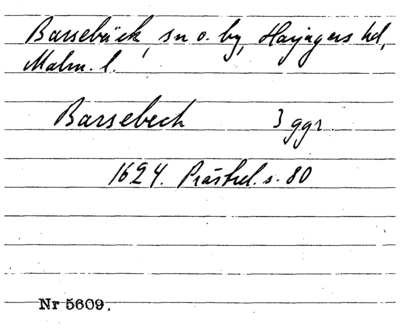 Barsebäck, sn o. by, Harjagers hd,
Malm. l.
Barsebech 3 ggr.
1624. Prästrel. s. 80
Nr 5609.